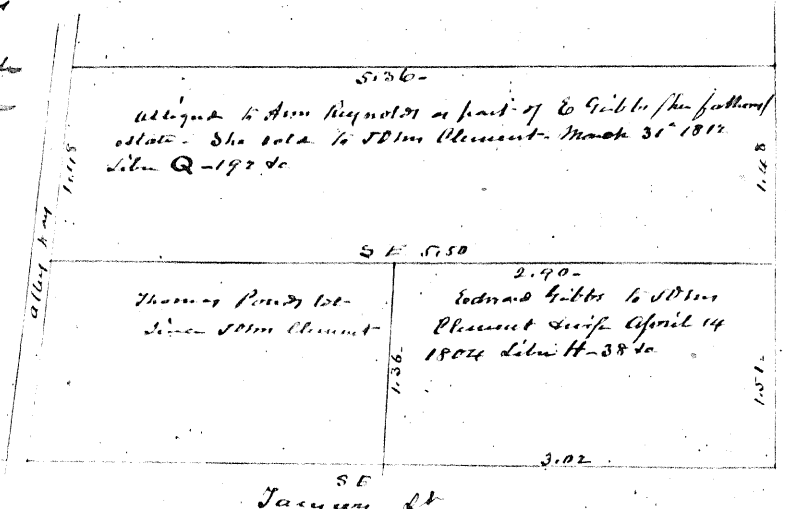 5.36-
assigned to Ann Reynolds as part of E Gibbs (her fathers)
estate - She sold to John Clement - March 31st 1812
Liber Q-192 &c
1.48
1.48
Alley way
S E 5.50
2.90-
Thomas Ponds lot-
Since John Clement
Edward Gibbs to John
Clement April 14
1804 Liber H-38 &c
1.36-
1.51-
3.02
S E
St